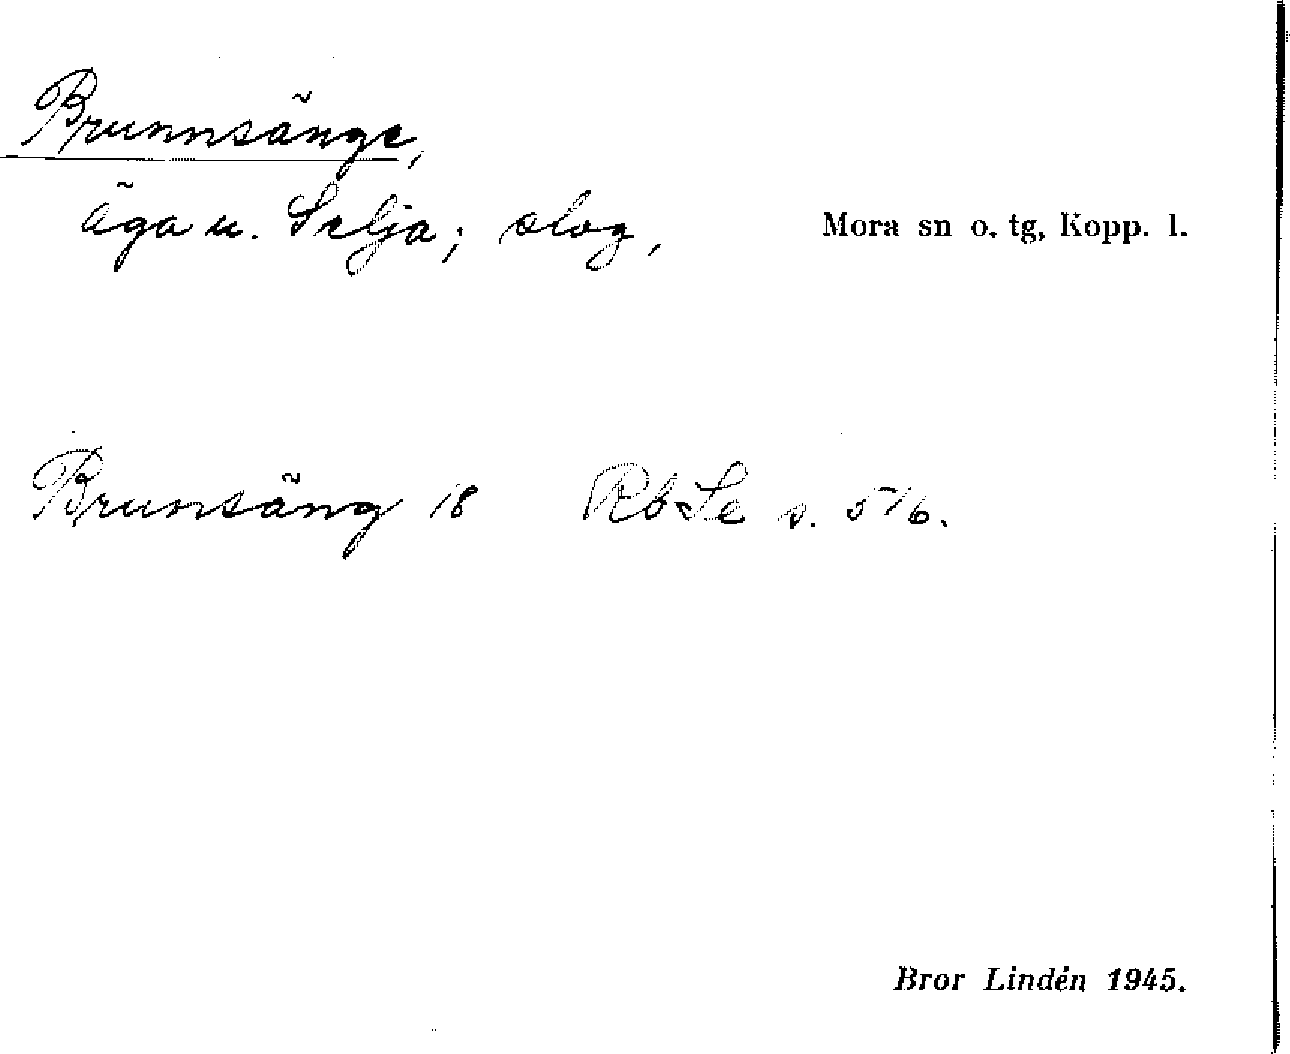 Brunnsänge,
äga u. Selja; slog, Mora sn o. tg, Kopp. l.
Brunsäng 18 RbSe s. 516.
Bror Lindén 1945.